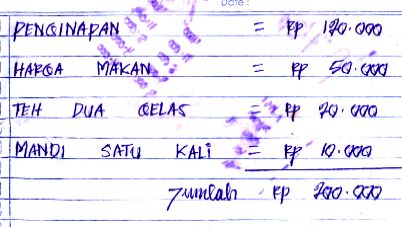 Date :
PENGINAPAN = Rp 120.000
HARGA MAKAN = Rp 50.000
TEH DUA GELAS = Rp 20.000
MANDI SATU KALI = Rp 10.000
Jumlah Rp 200.000